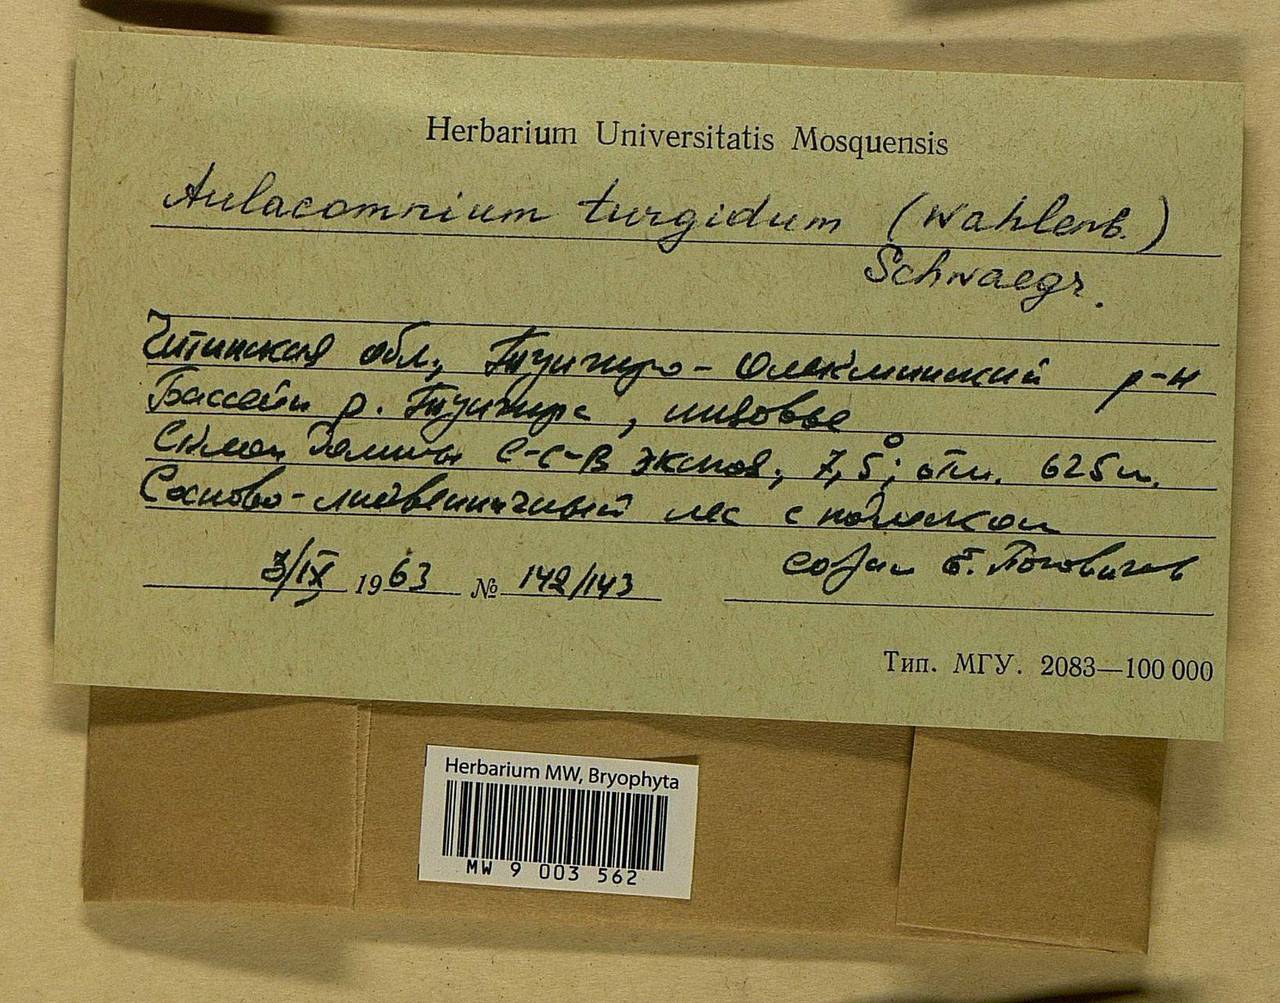 Herbarium Universitatis Mosquensis
Aulacomnium turgidum (Wahlenb.)
Schwaegr.
Читинская обл., Тунгиро-Олекминский р-н
Бассейн р. Тунгира, низовье
Склон долины С-С-В экспоз., 7,5°; отм. 625 м.
Сосново-лиственничный лес с
3/IX 1963 № 142/143
собрал
Тип. МГУ. 2083—100 000
Herbarium MW, Bryophyta
MW 9 003 562